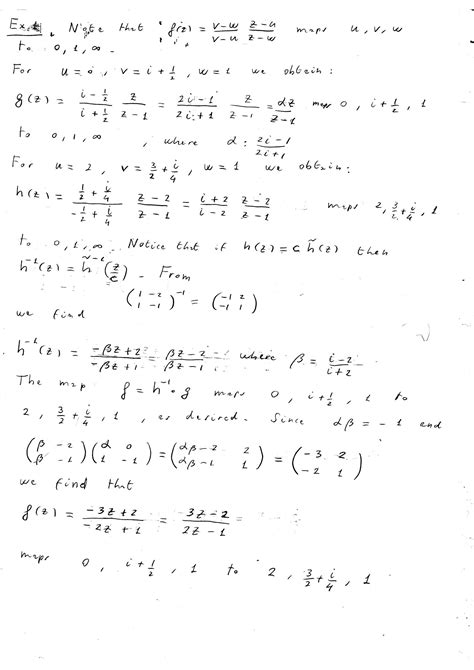 Ex. Note that g(z) = \frac{v-w}{v-u} \frac{z-u}{z-w} maps u, v, w
to 0, 1, ∞.
For u = 0, v = i + \frac{1}{2}, w = 1 we obtain:
g(z) = \frac{i - \frac{1}{2}}{i + \frac{1}{2}} \frac{z}{z-1} = \frac{2i-1}{2i+1} \frac{z}{z-1} = \frac{αz}{z-1} maps 0, i + \frac{1}{2}, 1
to 0, 1, ∞, where α = \frac{2i-1}{2i+1}
For u = 2, v = \frac{3}{2} + \frac{i}{4}, w = 1 we obtain:
h(z) = \frac{\frac{1}{2} + \frac{i}{4}}{-\frac{1}{2} + \frac{i}{4}} \frac{z-2}{z-1} = \frac{i+2}{i-2} \frac{z-2}{z-1} maps 2, \frac{3}{2} + \frac{i}{4}, 1
to 0, 1, ∞. Notice that if h(z) = c \tilde{h}(z) then
h^{-1}(z) = \tilde{h}^{-1}(\frac{z}{c}). From
\begin{pmatrix} 1 & -2 \\ 1 & -1 \end{pmatrix}^{-1} = \begin{pmatrix} -1 & 2 \\ -1 & 1 \end{pmatrix}
we find
h^{-1}(z) = \frac{-βz+2}{-βz+1} = \frac{βz-2}{βz-1} where β = \frac{i-2}{i+2}
The map f = h^{-1} ∘ g maps 0, i + \frac{1}{2}, 1 to
2, \frac{3}{2} + \frac{i}{4}, 1, as desired. Since αβ = -1 and
\begin{pmatrix} β & -2 \\ β & -1 \end{pmatrix} \begin{pmatrix} α & 0 \\ 1 & -1 \end{pmatrix} = \begin{pmatrix} αβ-2 & 2 \\ αβ-1 & 1 \end{pmatrix} = \begin{pmatrix} -3 & 2 \\ -2 & 1 \end{pmatrix}
we find that
f(z) = \frac{-3z+2}{-2z+1} = \frac{3z-2}{2z-1}
maps 0, i + \frac{1}{2}, 1 to 2, \frac{3}{2} + \frac{i}{4}, 1